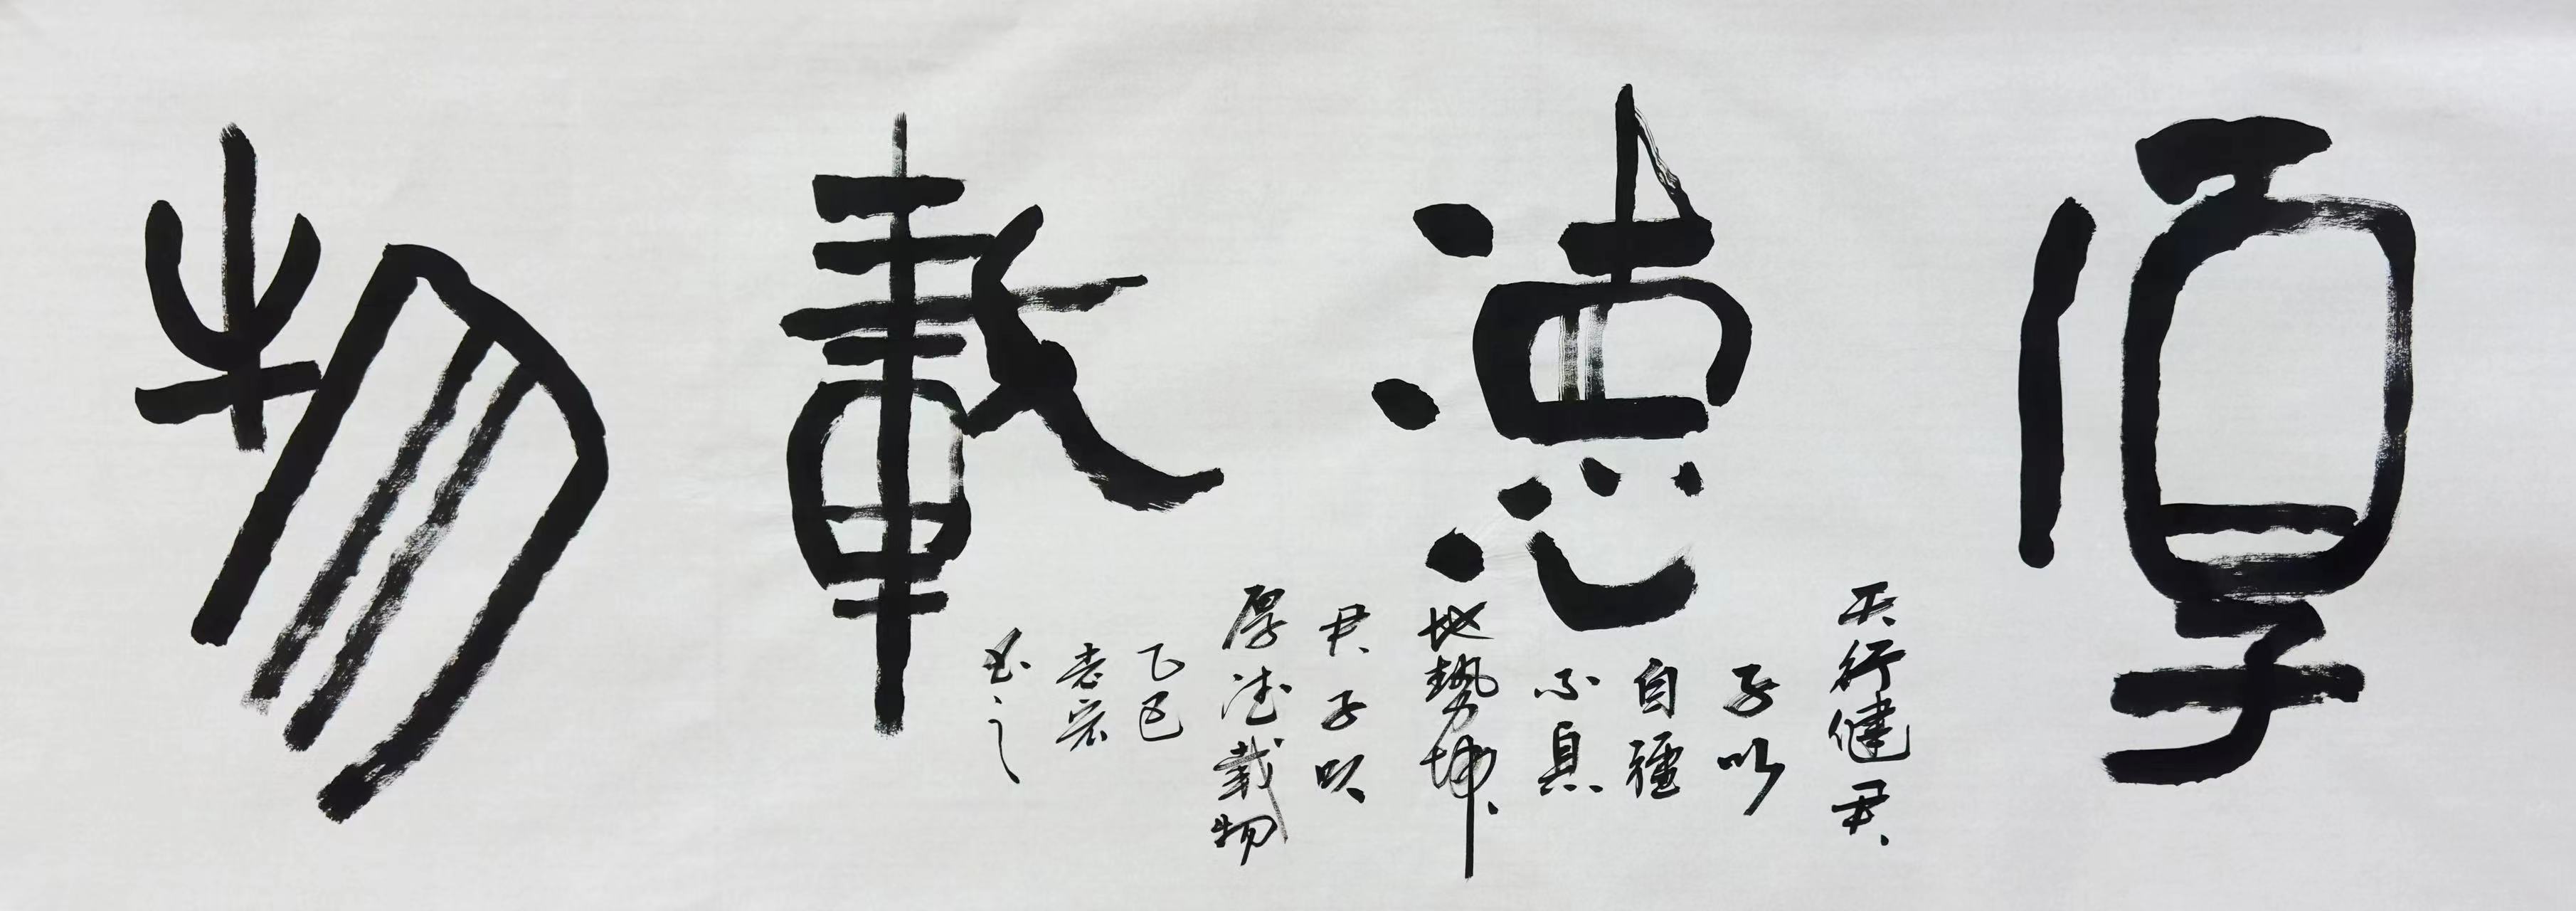 厚德載物
天行健君
子以
自疆
不息
地勢坤
君子以
厚德載物
乙巳
志宏
書之